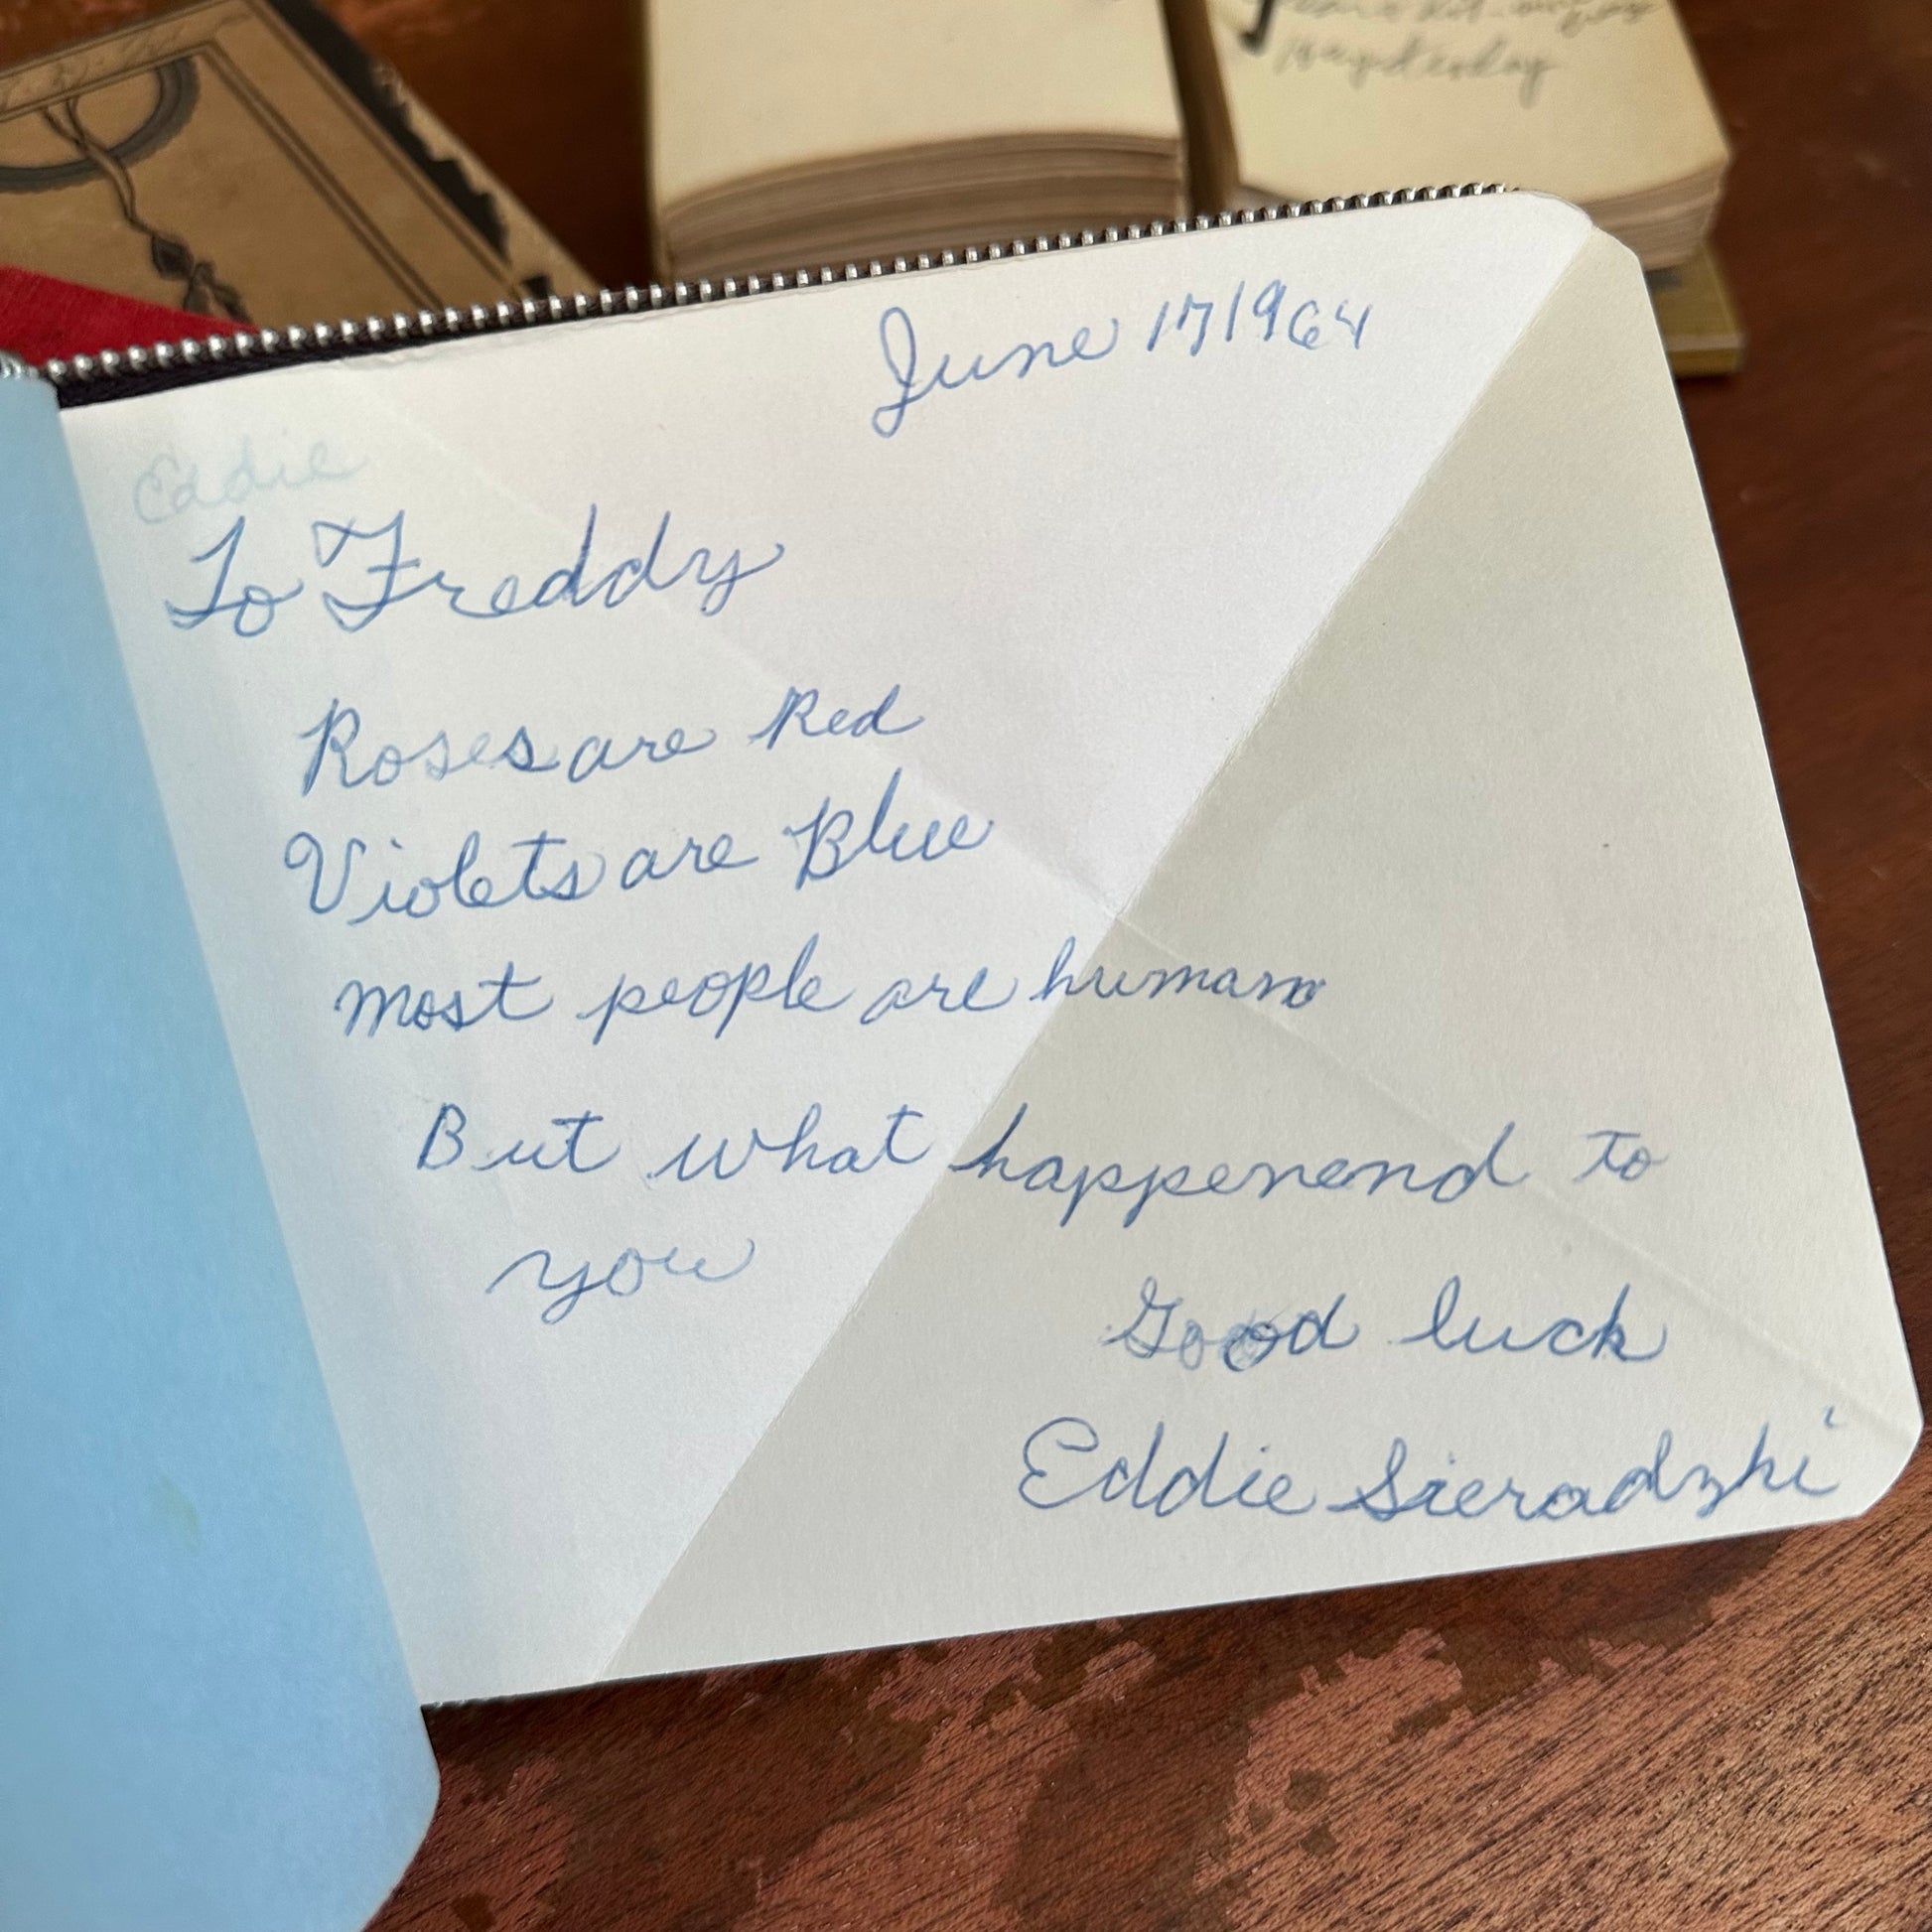 yesterday
June 17 1964
Eddie
To Freddy
Roses are Red
Violets are Blue
most people are human
But what happenend to
you
Good luck
Eddie Sieradzki